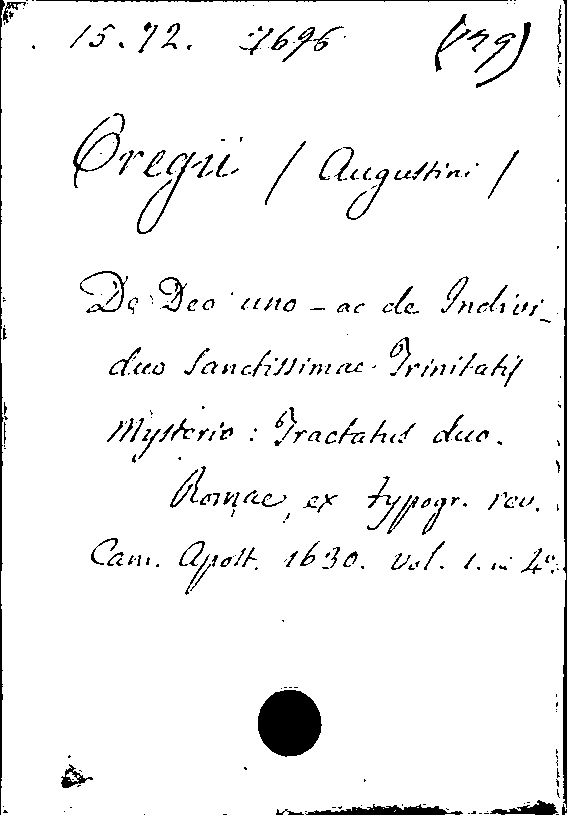 15.72. 7696 (139)
Oregii / Augustini /
De Deo uno - ac de Indivi-
duo Sanctissimae Trinitatis
Mysterio : Tractatus duo.
Romae, ex typogr. rev.
Cam. Apost. 1630. vol. 1. in 4°.